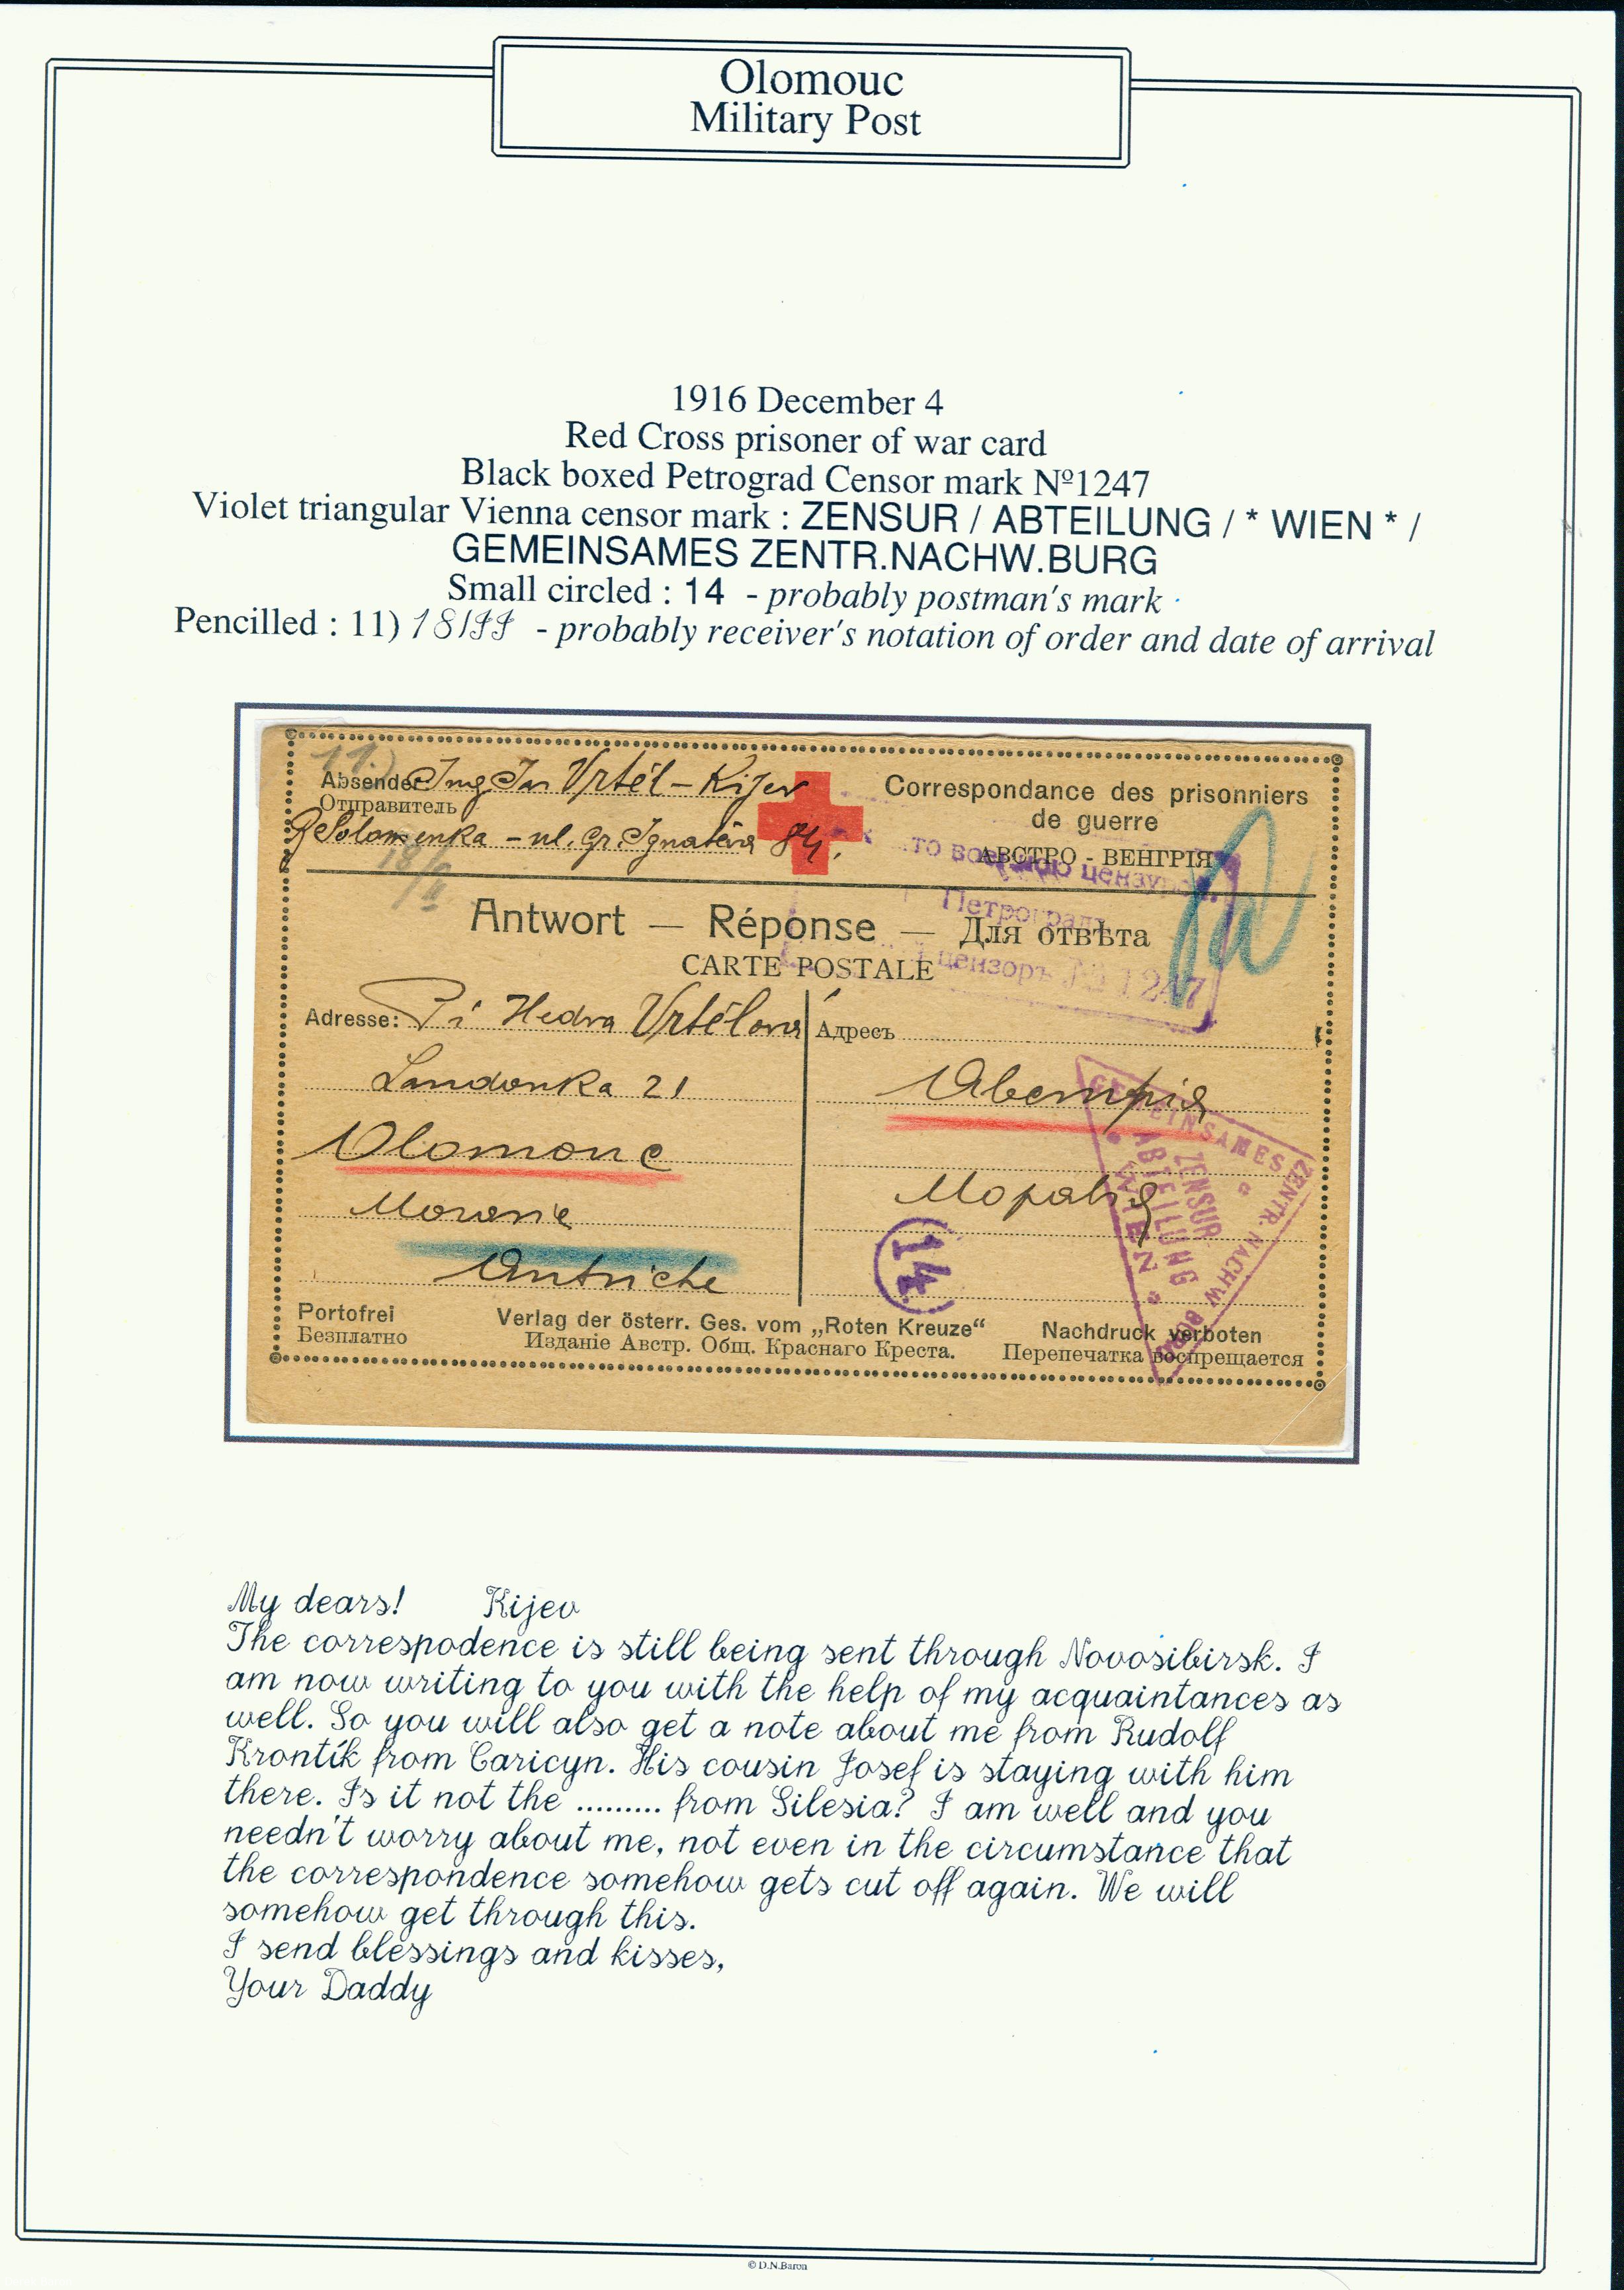 Olomouc
Military Post
1916 December 4
Red Cross prisoner of war card
Black boxed Petrograd Censor mark Nº1247
Violet triangular Vienna censor mark : ZENSUR / ABTEILUNG / * WIEN * /
GEMEINSAMES ZENTR.NACHW.BURG
Small circled : 14 - probably postman's mark
Pencilled : 11) 18/II - probably receiver's notation of order and date of arrival
11.)
Absender Ing Jan Vrtěl - Kijev
Отправитель
Solomenka - ul. gr. Ignatěva 84.
18/II
Correspondance des prisonniers
de guerre
АВСТРО - ВЕНГРІЯ
военною цензурой
Петроградъ
цензоръ № 1247
Antwort — Réponse — Для отвѣта
CARTE POSTALE
Adresse: Pí Hedva Vrtělova
Адресъ
Landonka 21
Австрія
Olomouc
Moravie
Моравія
Autriche
14
GEMEINSAMES ZENTR. NACHW BURG
ZENSUR
ABTEILUNG
* WIEN *
Portofrei
Безплатно
Verlag der österr. Ges. vom „Roten Kreuze“
Изданіе Австр. Общ. Краснаго Креста.
Nachdruck verboten
Перепечатка воспрещается
My dears! Kijev
The correspodence is still being sent through Novosibirsk. I
am now writing to you with the help of my acquaintances as
well. So you will also get a note about me from Rudolf
Krontík from Caricyn. His cousin Josef is staying with him
there. Is it not the ......... from Silesia? I am well and you
needn't worry about me, not even in the circumstance that
the correspondence somehow gets cut off again. We will
somehow get through this.
I send blessings and kisses,
Your Daddy
© D.N.Baron